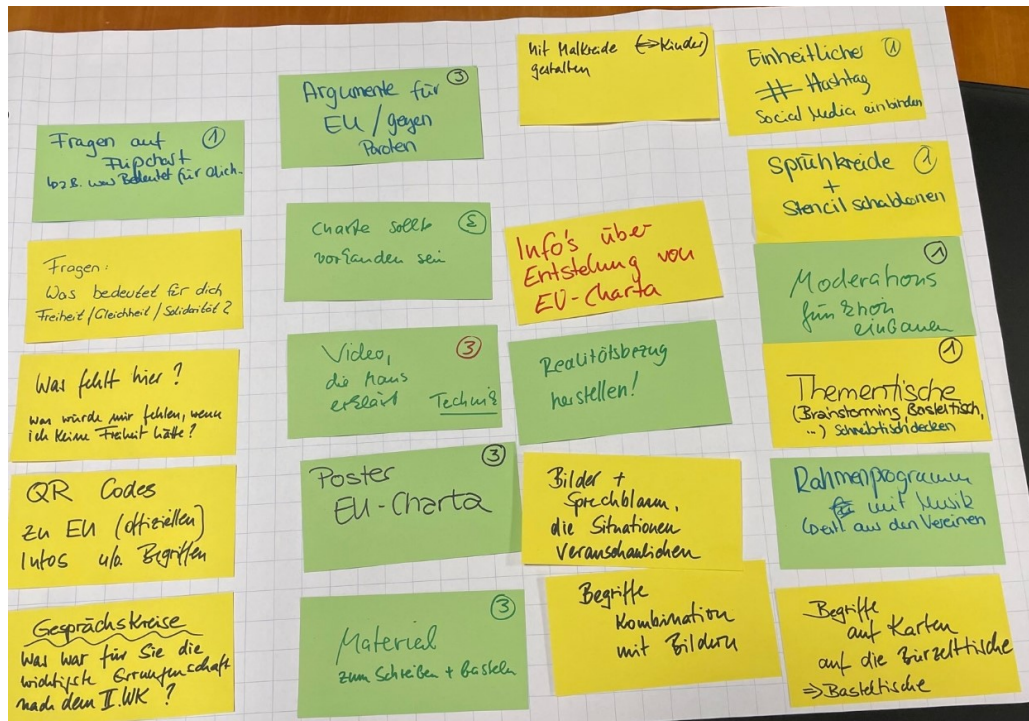 Fragen auf ①
Flipchart
bzw. was Bedeutet für dich
Fragen:
Was bedeutet für dich
Freiheit/Gleichheit/Solidarität?
Was fehlt hier?
Was würde mir fehlen, wenn
ich keine Freiheit hätte?
QR Codes
zu EU (offiziellen)
Infos u/o. Begriffen
Gesprächskreise
Was war für Sie die
wichtigste Errungenschaft
nach dem II. WK?
Argumente für ③
EU/gegen
Parolen
Charta sollte
vorhanden sein
Video, ③
die Maus
erklärt Technik
Poster ③
EU-Charta
Material ③
zum Schreiben + Basteln
Mit Malkreide (<=> Kinder)
gestalten
Info's über
Entstehung von
EU-Charta
Realitätsbezug
herstellen!
Bilder +
Sprechblasen,
die Situationen
veranschaulichen
Begriffe
Kombination
mit Bildern
Einheitlicher ①
# Hashtag
Social Media einbinden
Sprühkreide ①
+
Stencil schablonen
Moderations ①
einbauen
Thementische ①
(Brainstorming, Basteltisch,
...) Schreibtischdecken
Rahmenprogramm
mit Musik
aus den Vereinen
Begriffe
auf Karten
auf die
=> Basteltische